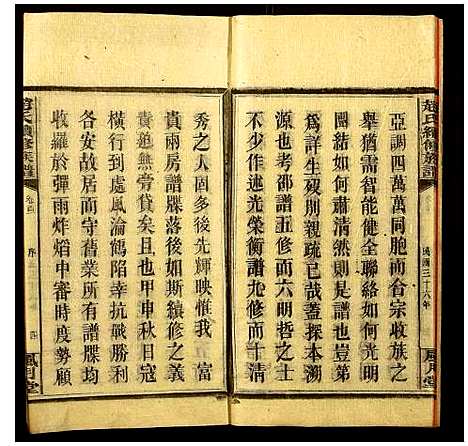 趙氏續修族譜
民國三十六年
風月堂
亞調四萬萬同胞而合宗收族之
舉猶需智能健全聯絡如何光明
團結如何肅清然則是譜也豈第
爲詳生刱明親疏已哉蓋探本溯
源一也考邵譜五修而六明哲之士
不少作述光榮衡譜九修而十清
秀之人固多後先輝映惟我 富
貴兩房譜牒落如斯續修之義
責迨無旁貸矣且也甲申秋日寇
橫行到處風淪鶴陷幸抗戰勝利
各安故居而守舊業所有譜牒均
收羅於彈雨炸熖中審時度勢顧
趙氏續修族譜
卷首
序
風月堂